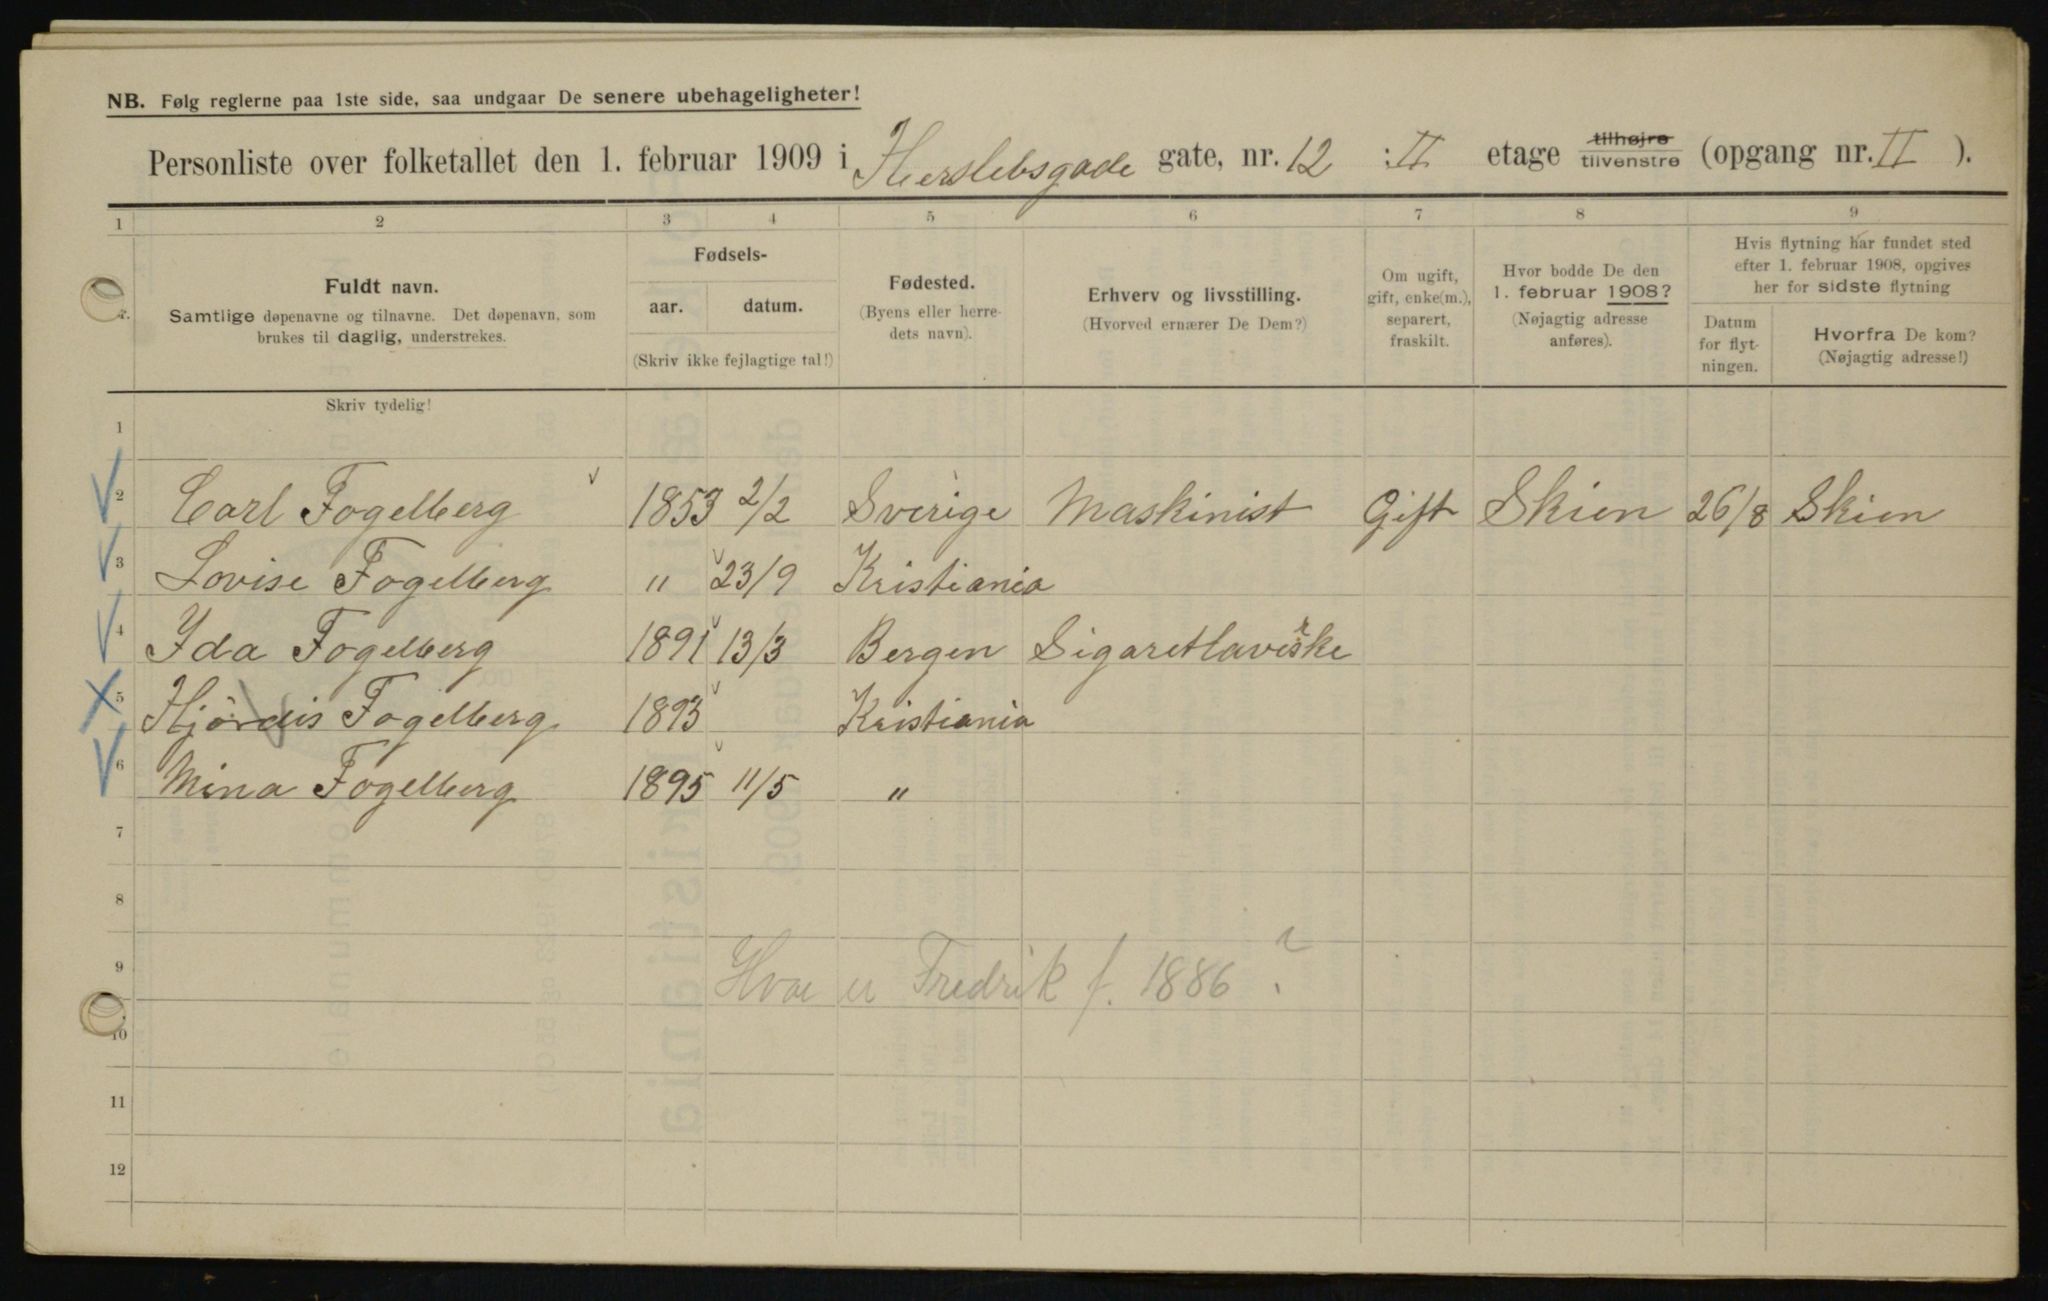 NB. Følg reglerne paa 1ste side, saa undgaar De senere ubehageligheter!
Personliste over folketallet den 1. februar 1909 i Herslebsgade gate, nr. 12 : II etage tilhøjre tilvenstre (opgang nr. II ).
1 2 3 4 5 6 7 8 9
Fuldt navn.
Samtlige døpenavne og tilnavne. Det døpenavn, som
brukes til daglig, understrekes.
Fødsels-
aar. datum.
(Skriv ikke fejlagtige tal!)
Fødested.
(Byens eller herre-
dets navn).
Erhverv og livsstilling.
(Hvorved ernærer De Dem?)
Om ugift,
gift, enke(m.),
separert,
fraskilt.
Hvor bodde De den
1. februar 1908?
(Nøjagtig adresse
anføres).
Hvis flytning har fundet sted
efter 1. februar 1908, opgives
her for sidste flytning
Datum
for flyt-
ningen.
Hvorfra De kom?
(Nøjagtig adresse!)
Skriv tydelig!
1
2 Carl Fogelberg 1853 2/2 Sverige Maskinist Gift Skien 26/8 Skien
3 Lovise Fogelberg " 23/9 Kristiania
4 Ida Fogelberg 1891 13/3 Bergen
5 Hjördis Fogelberg 1893 Kristiania
6 Mina Fogelberg 1895 11/5 "
7
8
9 Hvor er Fredrik f. 1886 ?
10
11
12